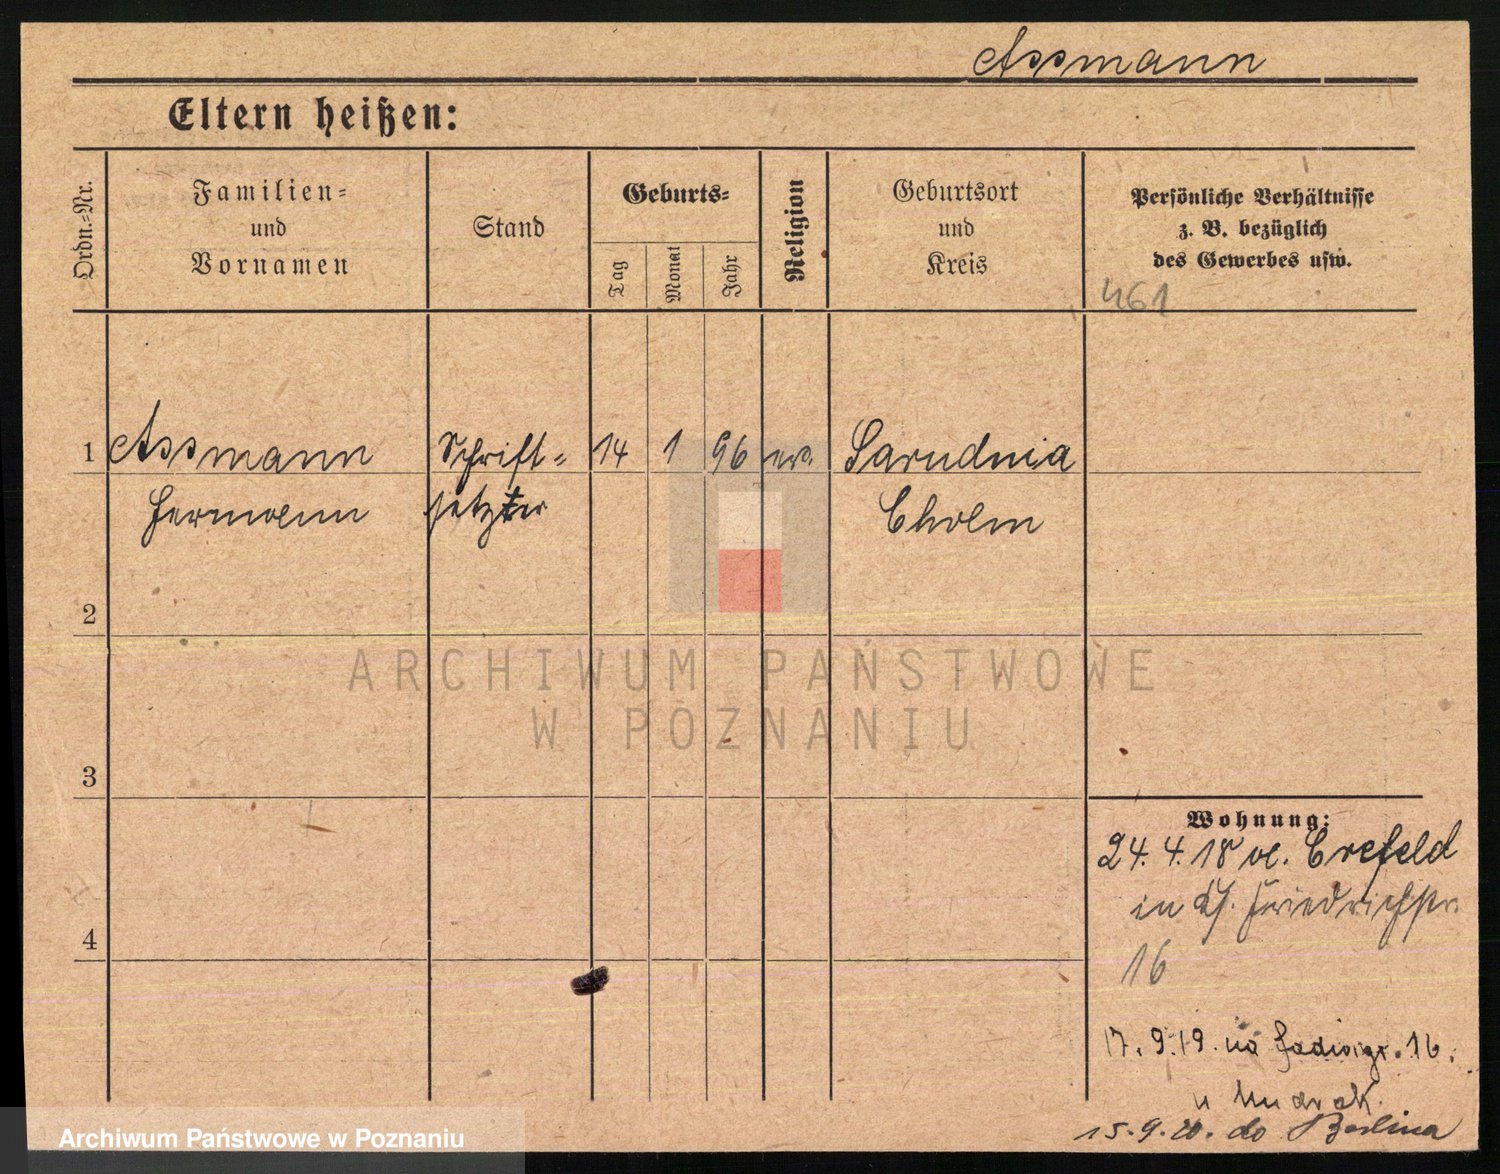 Assmann
Eltern heißen:
Ordn.=Nr.
Familien=
und
Vornamen
Stand
Geburts=
Tag
Monat
Jahr
Religion
Geburtsort
und
Kreis
Persönliche Verhältnisse
z. B. bezüglich
des Gewerbes usw.
461
1 Assmann Schrift= 14 1 96 ev. Sarudnia
Hermann setzter Cholm
2
ARCHIWUM PAŃSTWOWE
W POZNANIU
3
Wohnung:
24. 4. 18 Crefeld
in Friedrichstr
4
16
17. 9. 19. 16.
u
15. 9. 20. do Berlina
Archiwum Państwowe w Poznaniu